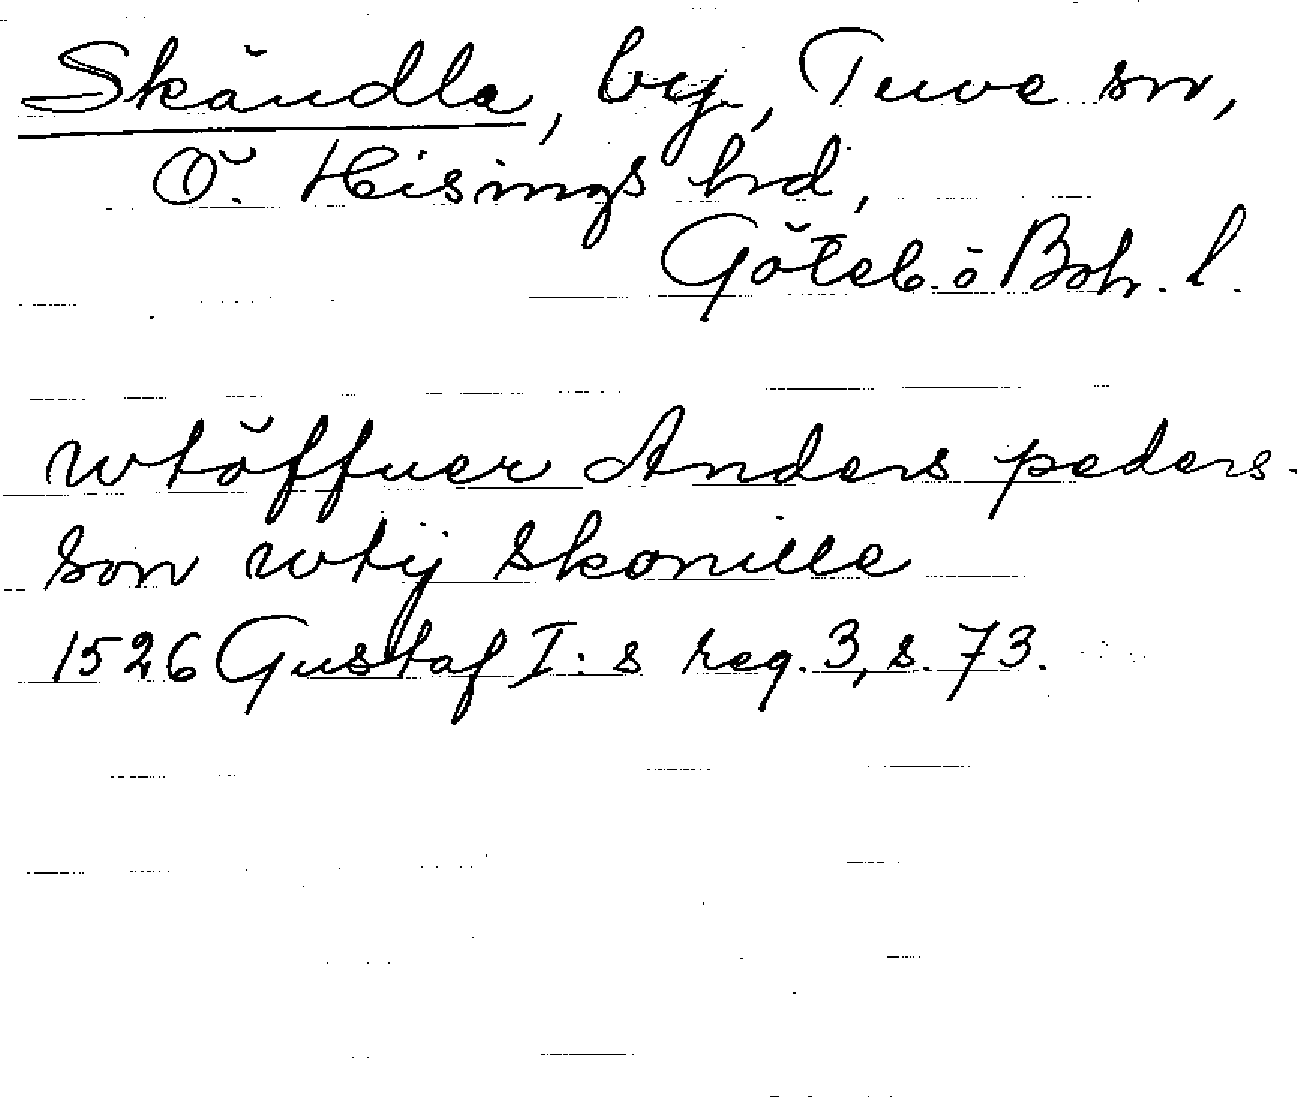 Skändla, by, Tuve sn,
Ö. Hisings hd,
Göteb. o Boh. l.
wtöffuer Anders peders-
son wtij skonille
1526 Gustaf I:s reg. 3, s. 73.